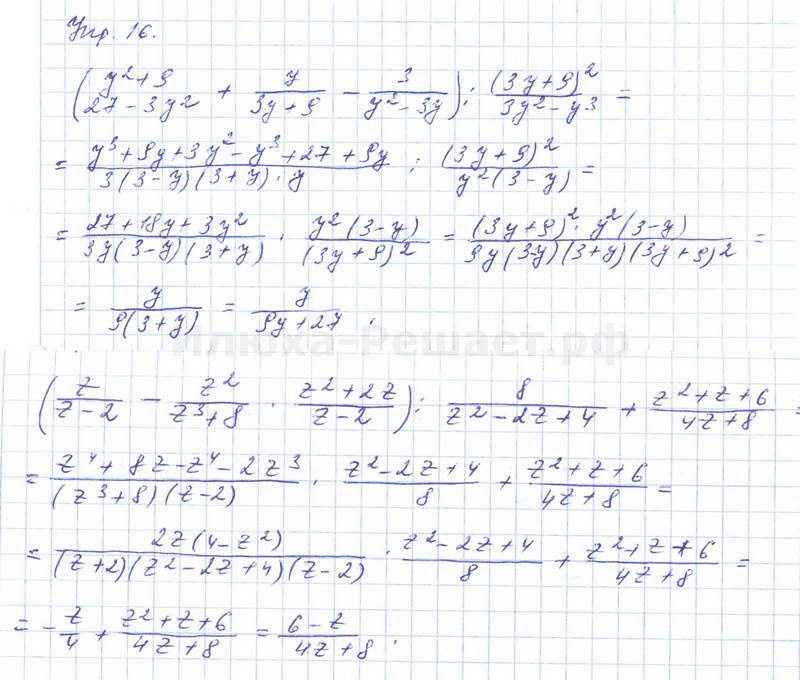 Упр. 16.
((y²+9)/(27-3y²) + y/(3y+9) - 3/(y²-3y)) : (3y+9)²/(3y²-y³) =
= (y³+9y+3y²-y³+27+9y)/(3(3-y)(3+y)·y) : (3y+9)²/(y²(3-y)) =
= (27+18y+3y²)/(3y(3-y)(3+y)) · (y²(3-y))/(3y+9)² = ((3y+9)²·y²(3-y))/(9y(3-y)(3+y)(3y+9)²) =
= y/(9(3+y)) = y/(9y+27) ;
Илюха-Решает.рф
(z/(z-2) - z²/(z³+8) · (z²+2z)/(z-2)) : 8/(z²-2z+4) + (z²+z+6)/(4z+8) =
= (z⁴+8z-z⁴-2z³)/((z³+8)(z-2)) · (z²-2z+4)/8 + (z²+z+6)/(4z+8) =
= (2z(4-z²))/((z+2)(z²-2z+4)(z-2)) · (z²-2z+4)/8 + (z²+z+6)/(4z+8) =
= -z/4 + (z²+z+6)/(4z+8) = (6-z)/(4z+8) .